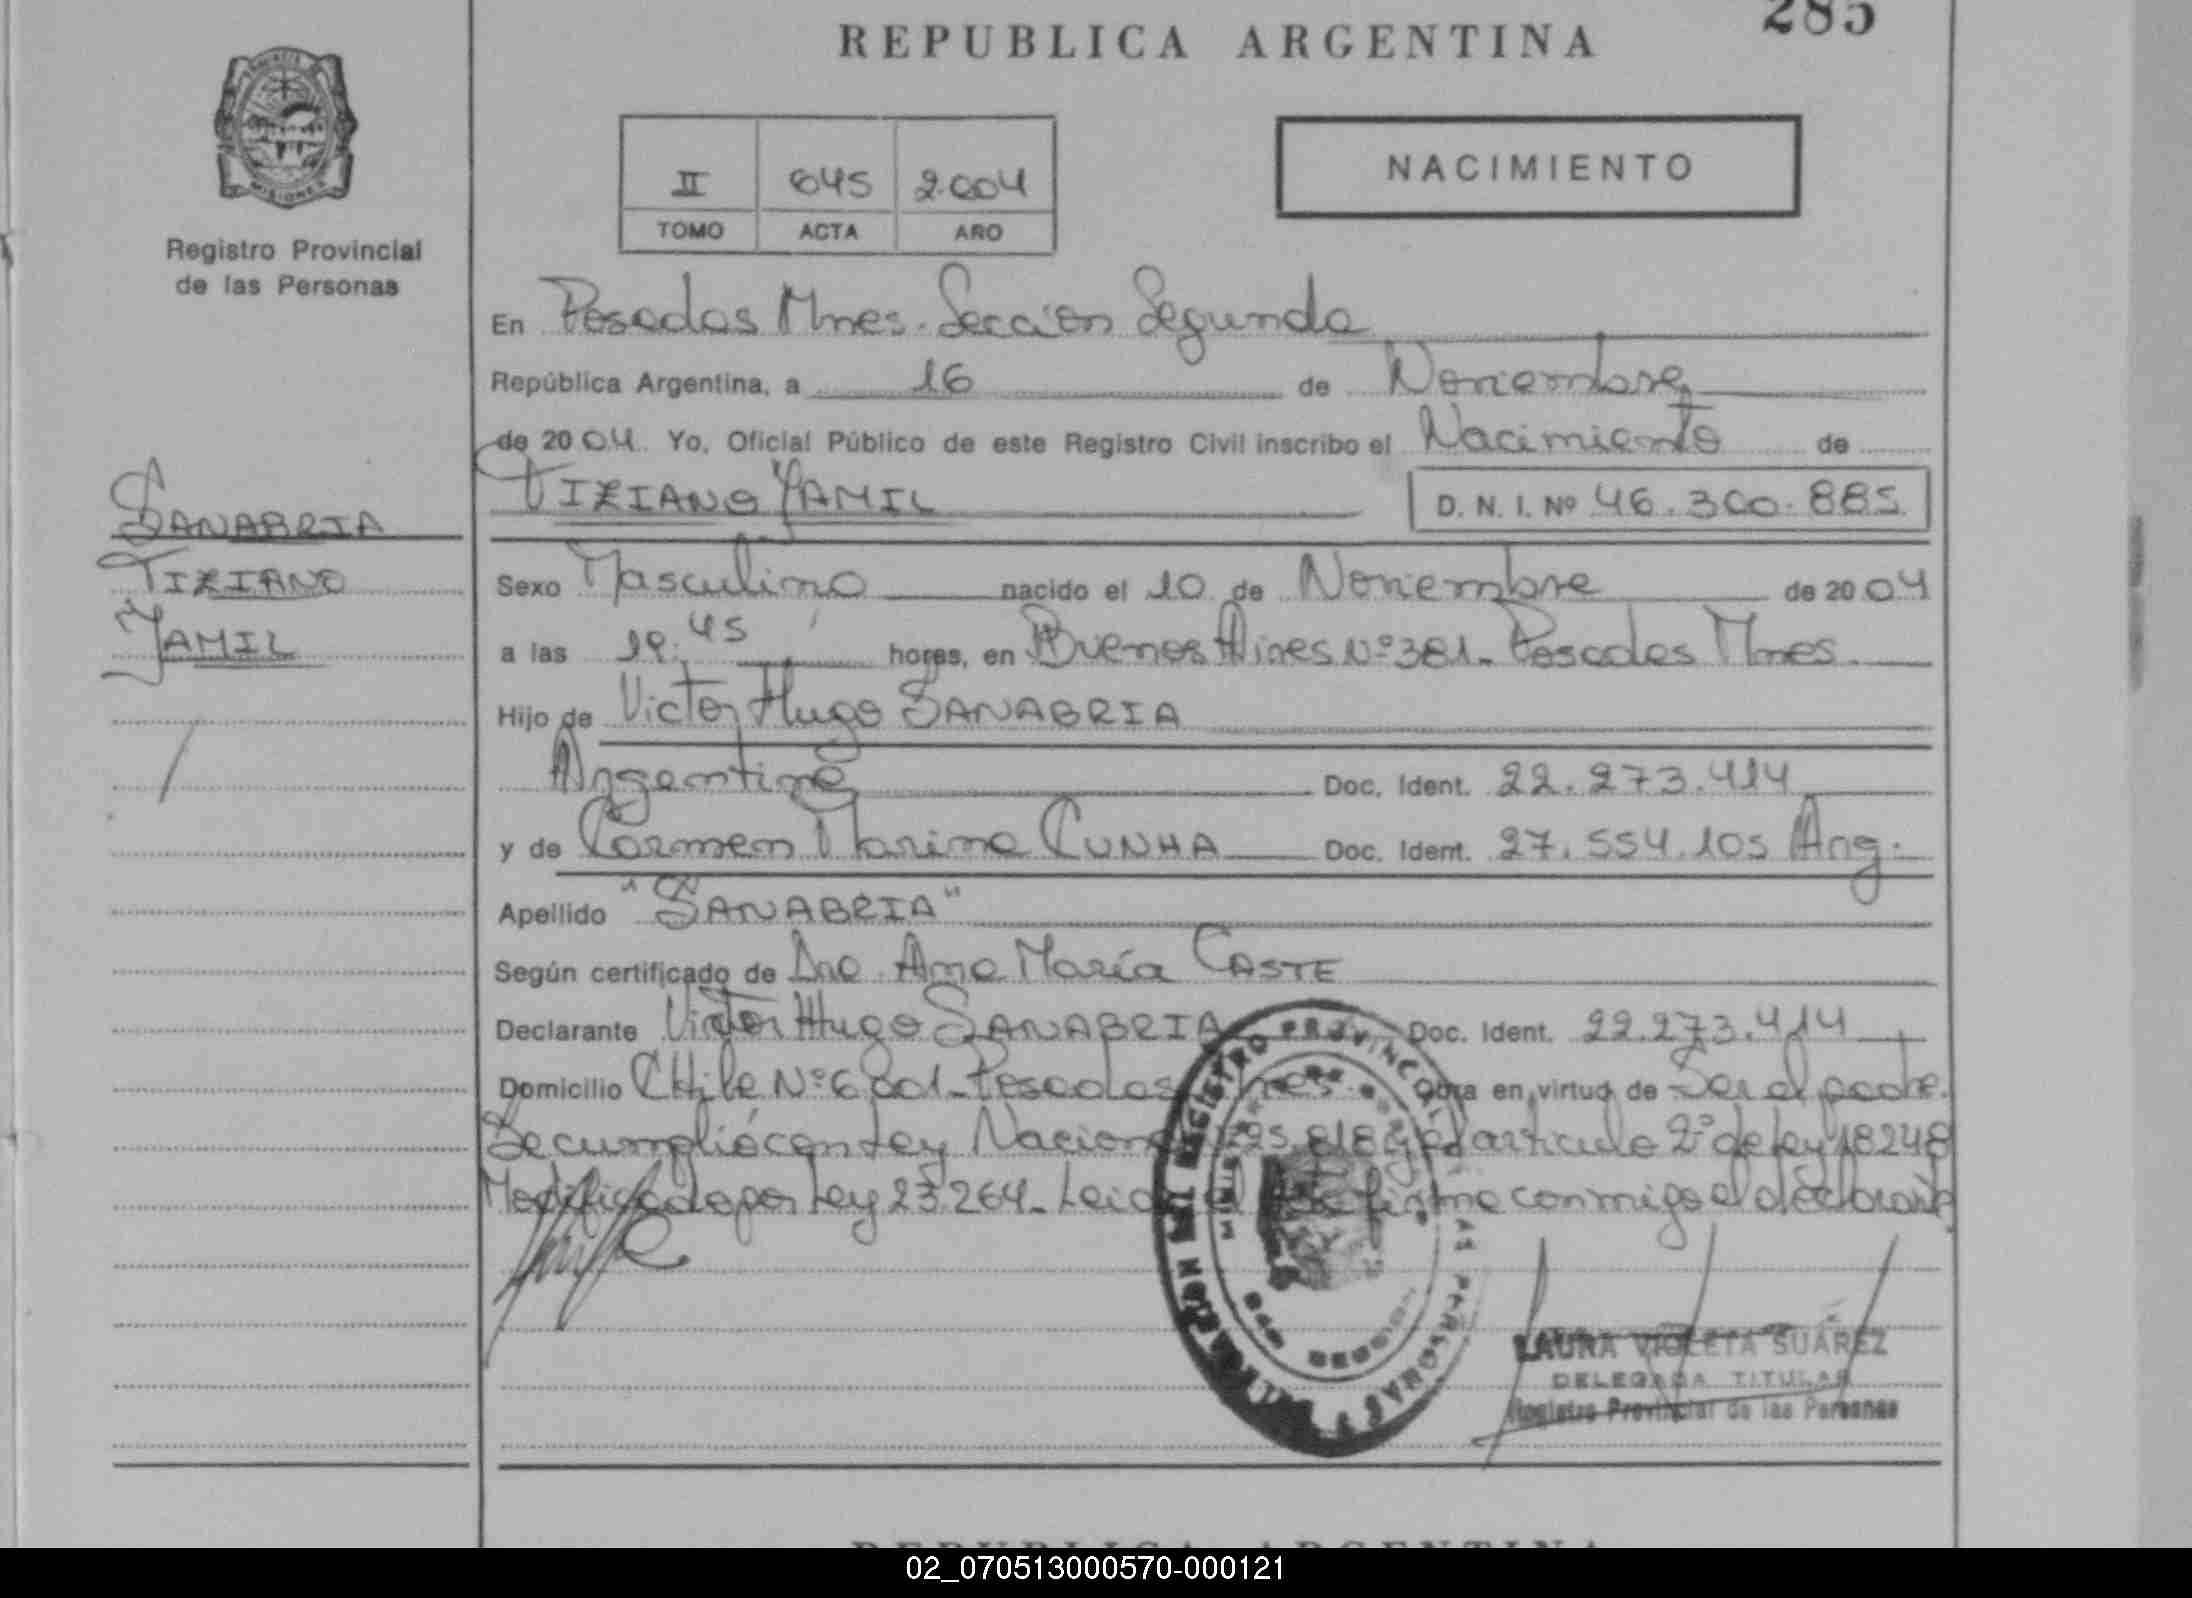 REPUBLICA ARGENTINA
285
PROVINCIA DE MISIONES
Registro Provincial
de las Personas
II 645 2.004
TOMO ACTA AÑO
NACIMIENTO
En Posadas Mnes. Sección Segunda
República Argentina, a 16 de Noviembre
de 2004. Yo, Oficial Público de este Registro Civil inscribo el Nacimiento de
TIZIANO YAMIL D. N. I. Nº 46.300.885
SANABRIA
TIZIANO
YAMIL
Sexo Masculino nacido el 10 de Noviembre de 2004
a las 19:45 horas, en Buenos Aires Nº 381 - Posadas Mnes.
Hijo de Victor Hugo SANABRIA
Argentino Doc. Ident. 22.273.414
y de Carmen Marina CUNHA Doc. Ident. 27.554.105 Arg.
Apellido "SANABRIA"
Según certificado de Dra. Ana María CASTE
Declarante Victor Hugo SANABRIA Doc. Ident. 22.273.414
Domicilio CHile Nº 6801 - Posadas Mnes. Obra en virtud de Ser el padre.
Se cumplió con Ley Nacional 25.818 y el articulo 2º de Ley 18248
Modificada por Ley 23.264 - Leida el Acta firma conmigo el declarante
REGISTRO PROVINCIAL DE LAS PERSONAS
LAURA VIOLETA SUÁREZ
DELEGADA TITULAR
Registro Provincial de las Personas
REPUBLICA ARGENTINA
02_070513000570-000121